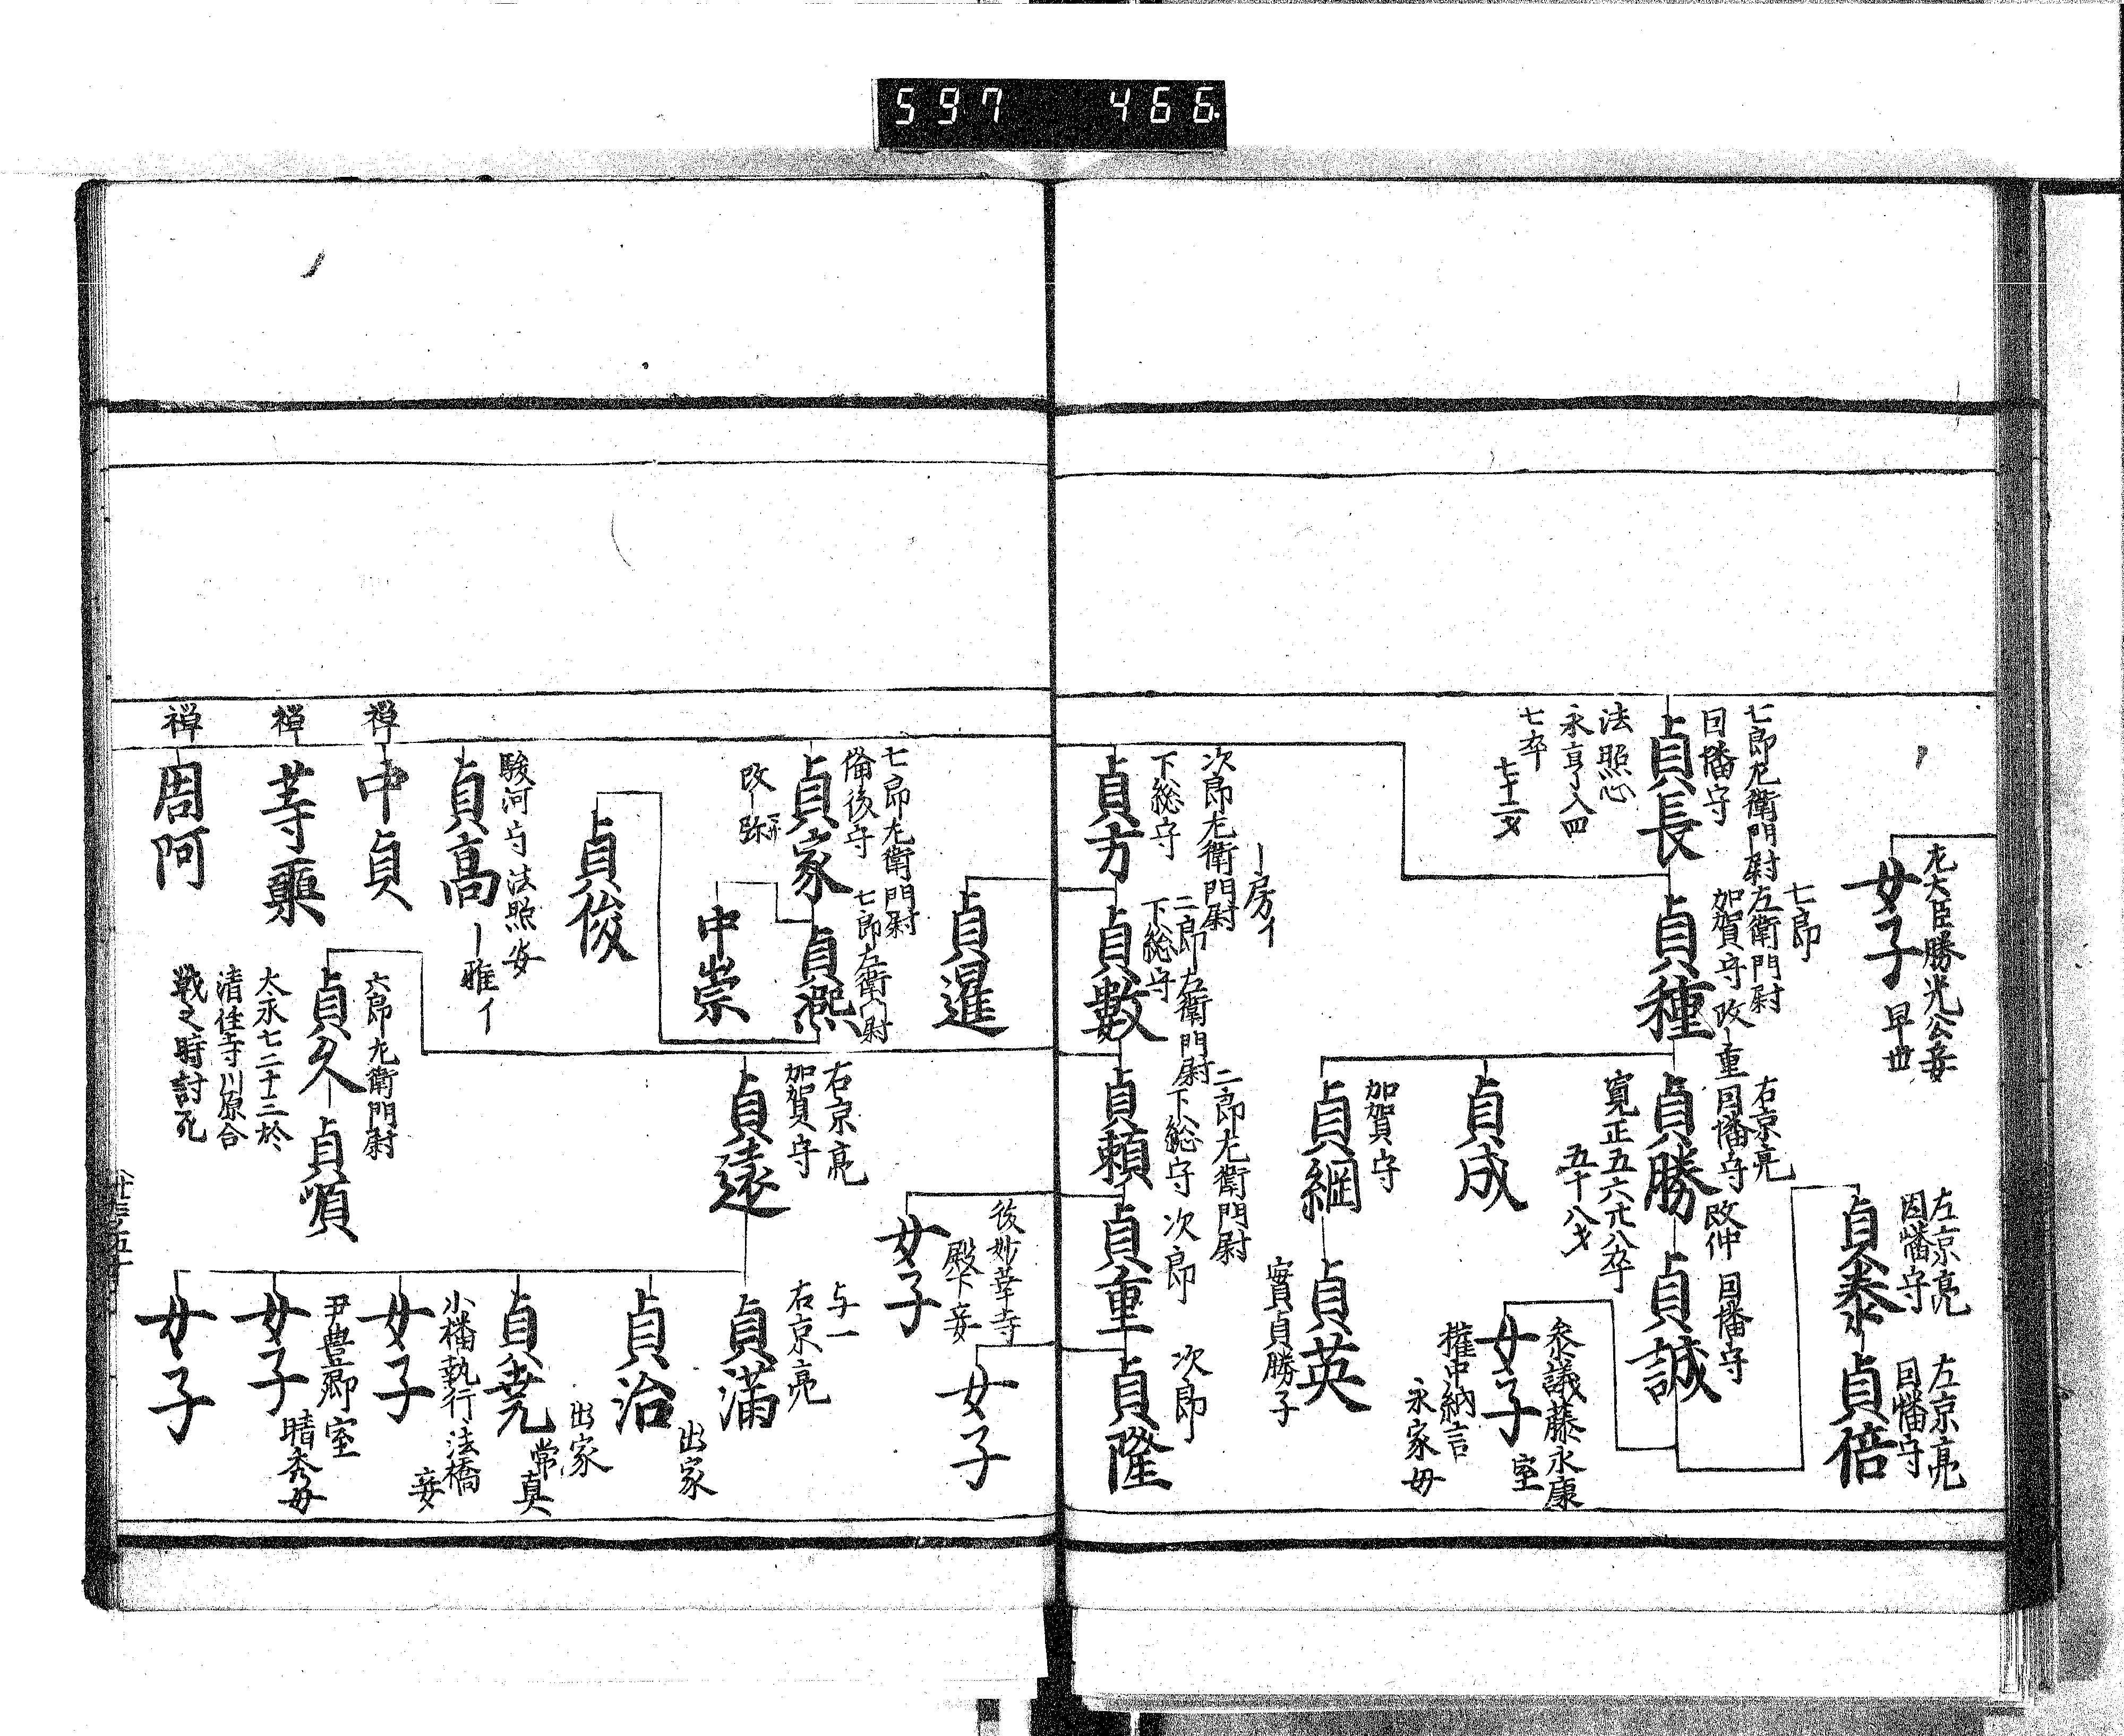 597 466
女子
左大臣勝光公妾
早世
七郎左衛門尉
因幡守
貞長
法照心
永享八四
七卒
七十二才
七郎
左衛門尉
加賀守
改重
貞種
右京亮
因幡守
改仲
貞勝
寛正五六廿八卒
五十八才
因幡守
貞誠
左京亮
因幡守
貞泰
左京亮
因幡守
貞倍
参議藤永康
室
女子
権中納言
永家母
貞成
加賀守
貞綱
貞英
實貞勝子
房イ
次郎左衛門尉
下総守
貞方
二郎右衛門尉
下総守
貞數
二郎左衛門尉
下総守
貞頼
次郎
貞重
次郎
貞隆
貞暹
後妙華寺
殿下妾
女子
女子
七郎左衛門尉
備後守
貞家
改弥
七郎左衛門尉
貞熈
中崇
貞俊
右京亮
加賀守
貞遠
与一
右京亮
貞満
出家
貞治
出家
常真
貞尭
小槻執行法橋
妾
女子
尹豊卿室
晴秀母
女子
女子
駿河守
法照安
貞高
雅イ
六郎左衛門尉
貞久
大永七二十三於
清住寺川原合
戦之時討死
貞順
禅
中貞
禅
等藥
禅
周阿